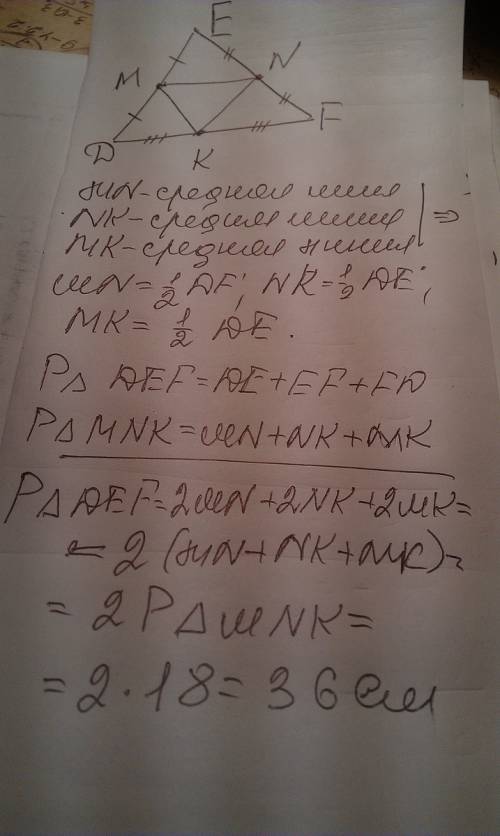 E
M
N
F
D
K
MN-средняя линия
NK-средняя линия | ⇒
MK-средняя линия
MN = 1/2 DF; NK = 1/2 DE;
MK = 1/2 DE.
P△ DEF = DE + EF + FD
P△ MNK = MN + NK + MK
P△ DEF = 2MN + 2NK + 2MK =
= 2 (MN + NK + MK) =
= 2 P△ MNK =
= 2 · 18 = 36 см